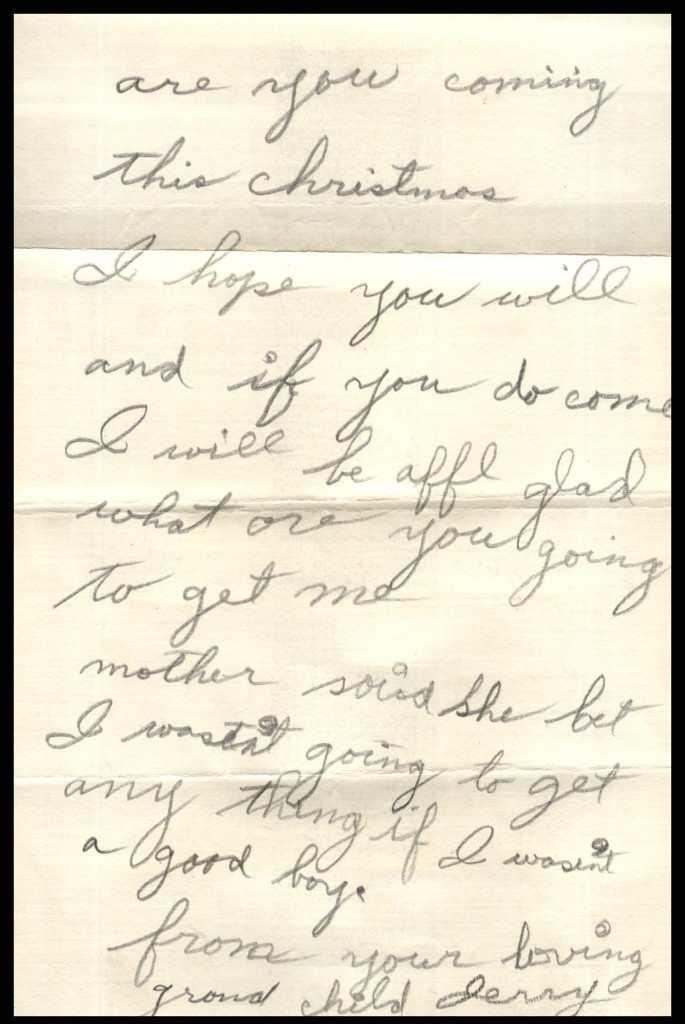 are you coming
this christmas
I hope you will
and if you do come
I will be affl glad
what are you going
to get me
mother said she bet
I wasent going to get
any thing if I wasent
a good boy.
from your loving
grand child Jerry